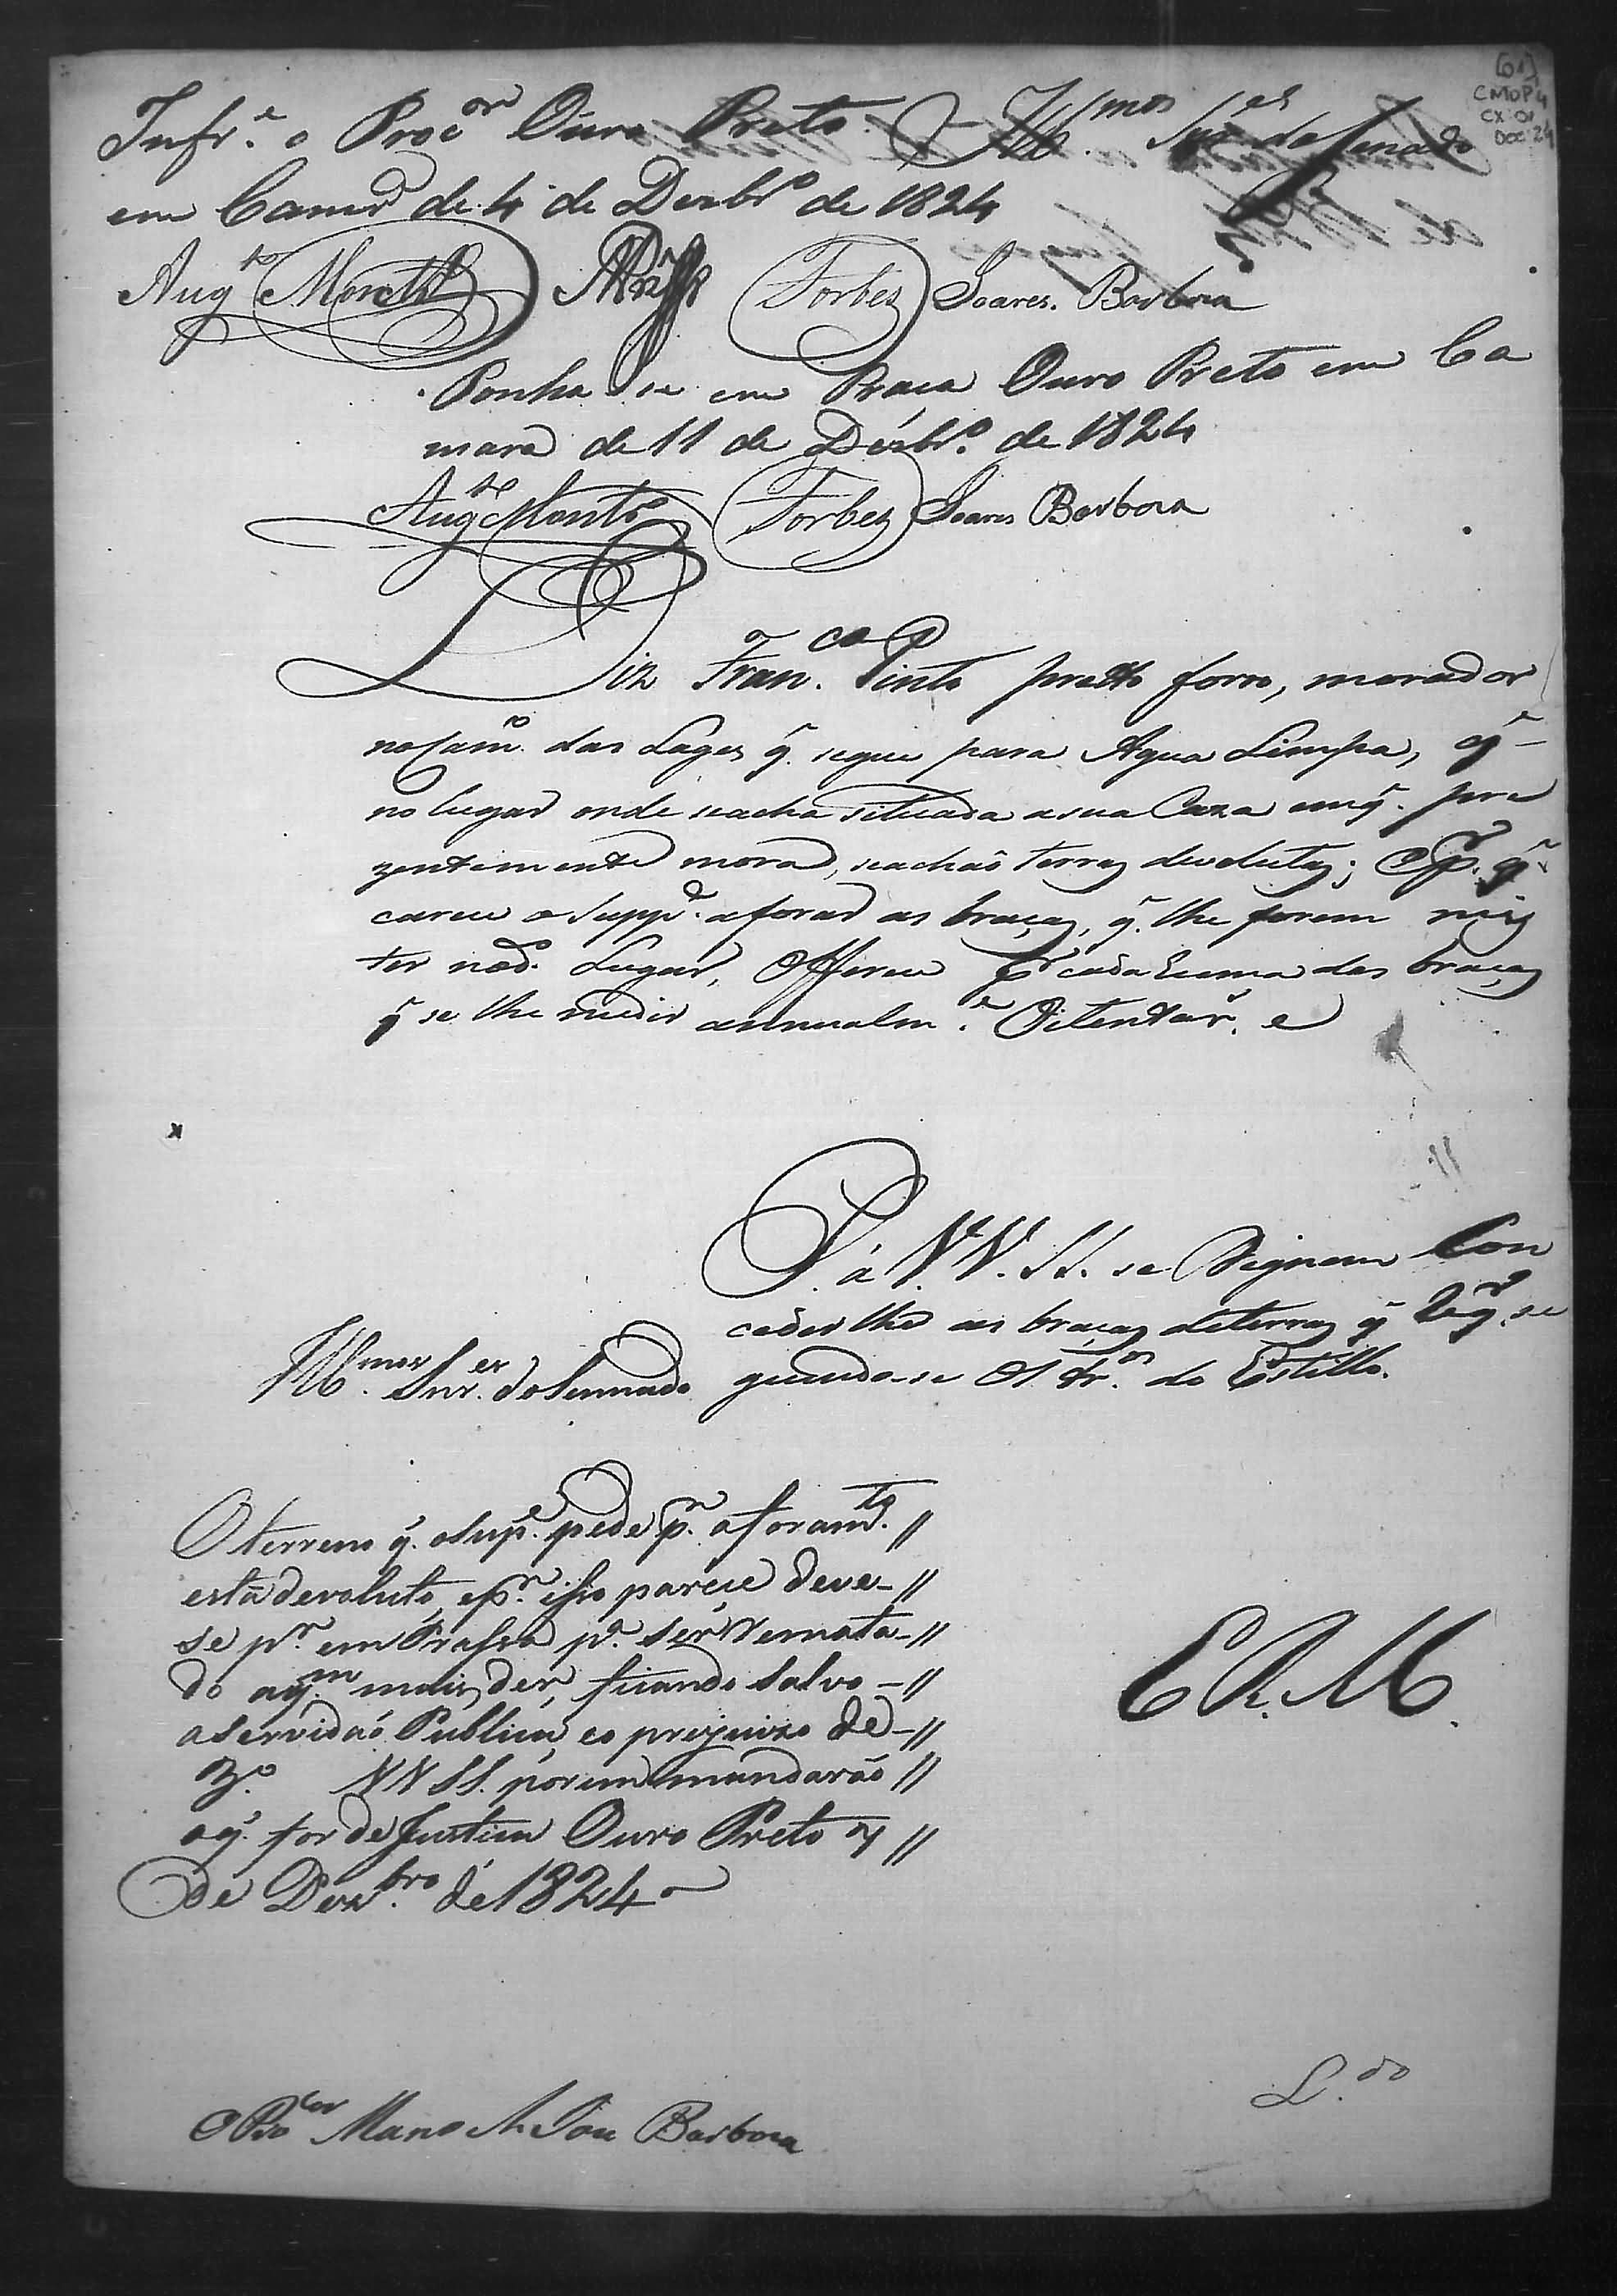 [01]
CMOP 4
CX 01
DOC 24
Infr.e o Procor Ouro Preto Illmos Snres do Senado
em Camrã de 4 de Dezbrº de 1824
Augto Montrº Forbes Soares. Barboza
Ponha se em Praca Ouro Preto em Ca
mara de 11 de Dezbrº. de 1824
Augto Montrº Forbes Soares Barboza
Diz Fran.co Pinto pretto forro, morador
no Cam.º das Lages q̃. segue para Agua Limpa, q̃
no lugar onde seacha situada asua Caza emq̃. pre
zentimente mora, seachaõ terras devolutas; e p.r q̃
carece o Supp.e aforar as braças, q̃. lhe forem mis
ter nod.º Lugar, Offerece p.r cada huma das braças
q̃ se lhe medir annualm.e Oitenta r.s, e
P. á V.V. SS. se Dignem Con
ceder lhe as braças deterras q̃ req.r, se
Ill.mos Snr.es do Sennado guindo-se os tr.os do Estillo.
O terreno q̃. oSup.e pede p.a aforam.to //
está devoluto, ep.r isso parece deve- //
se p.r em Prassa p.a ser remata- //
do aq.m mais der, ficando salvo - //
aservidaõ Publica, eo prejuizo de - //
3.º VV SS. porem mandaraõ //
oq̃. for de Justica Ouro Preto 7 //
de Dez.bro de 1824
E R. M.
L.do
O Procor Manoel Joze Barboza